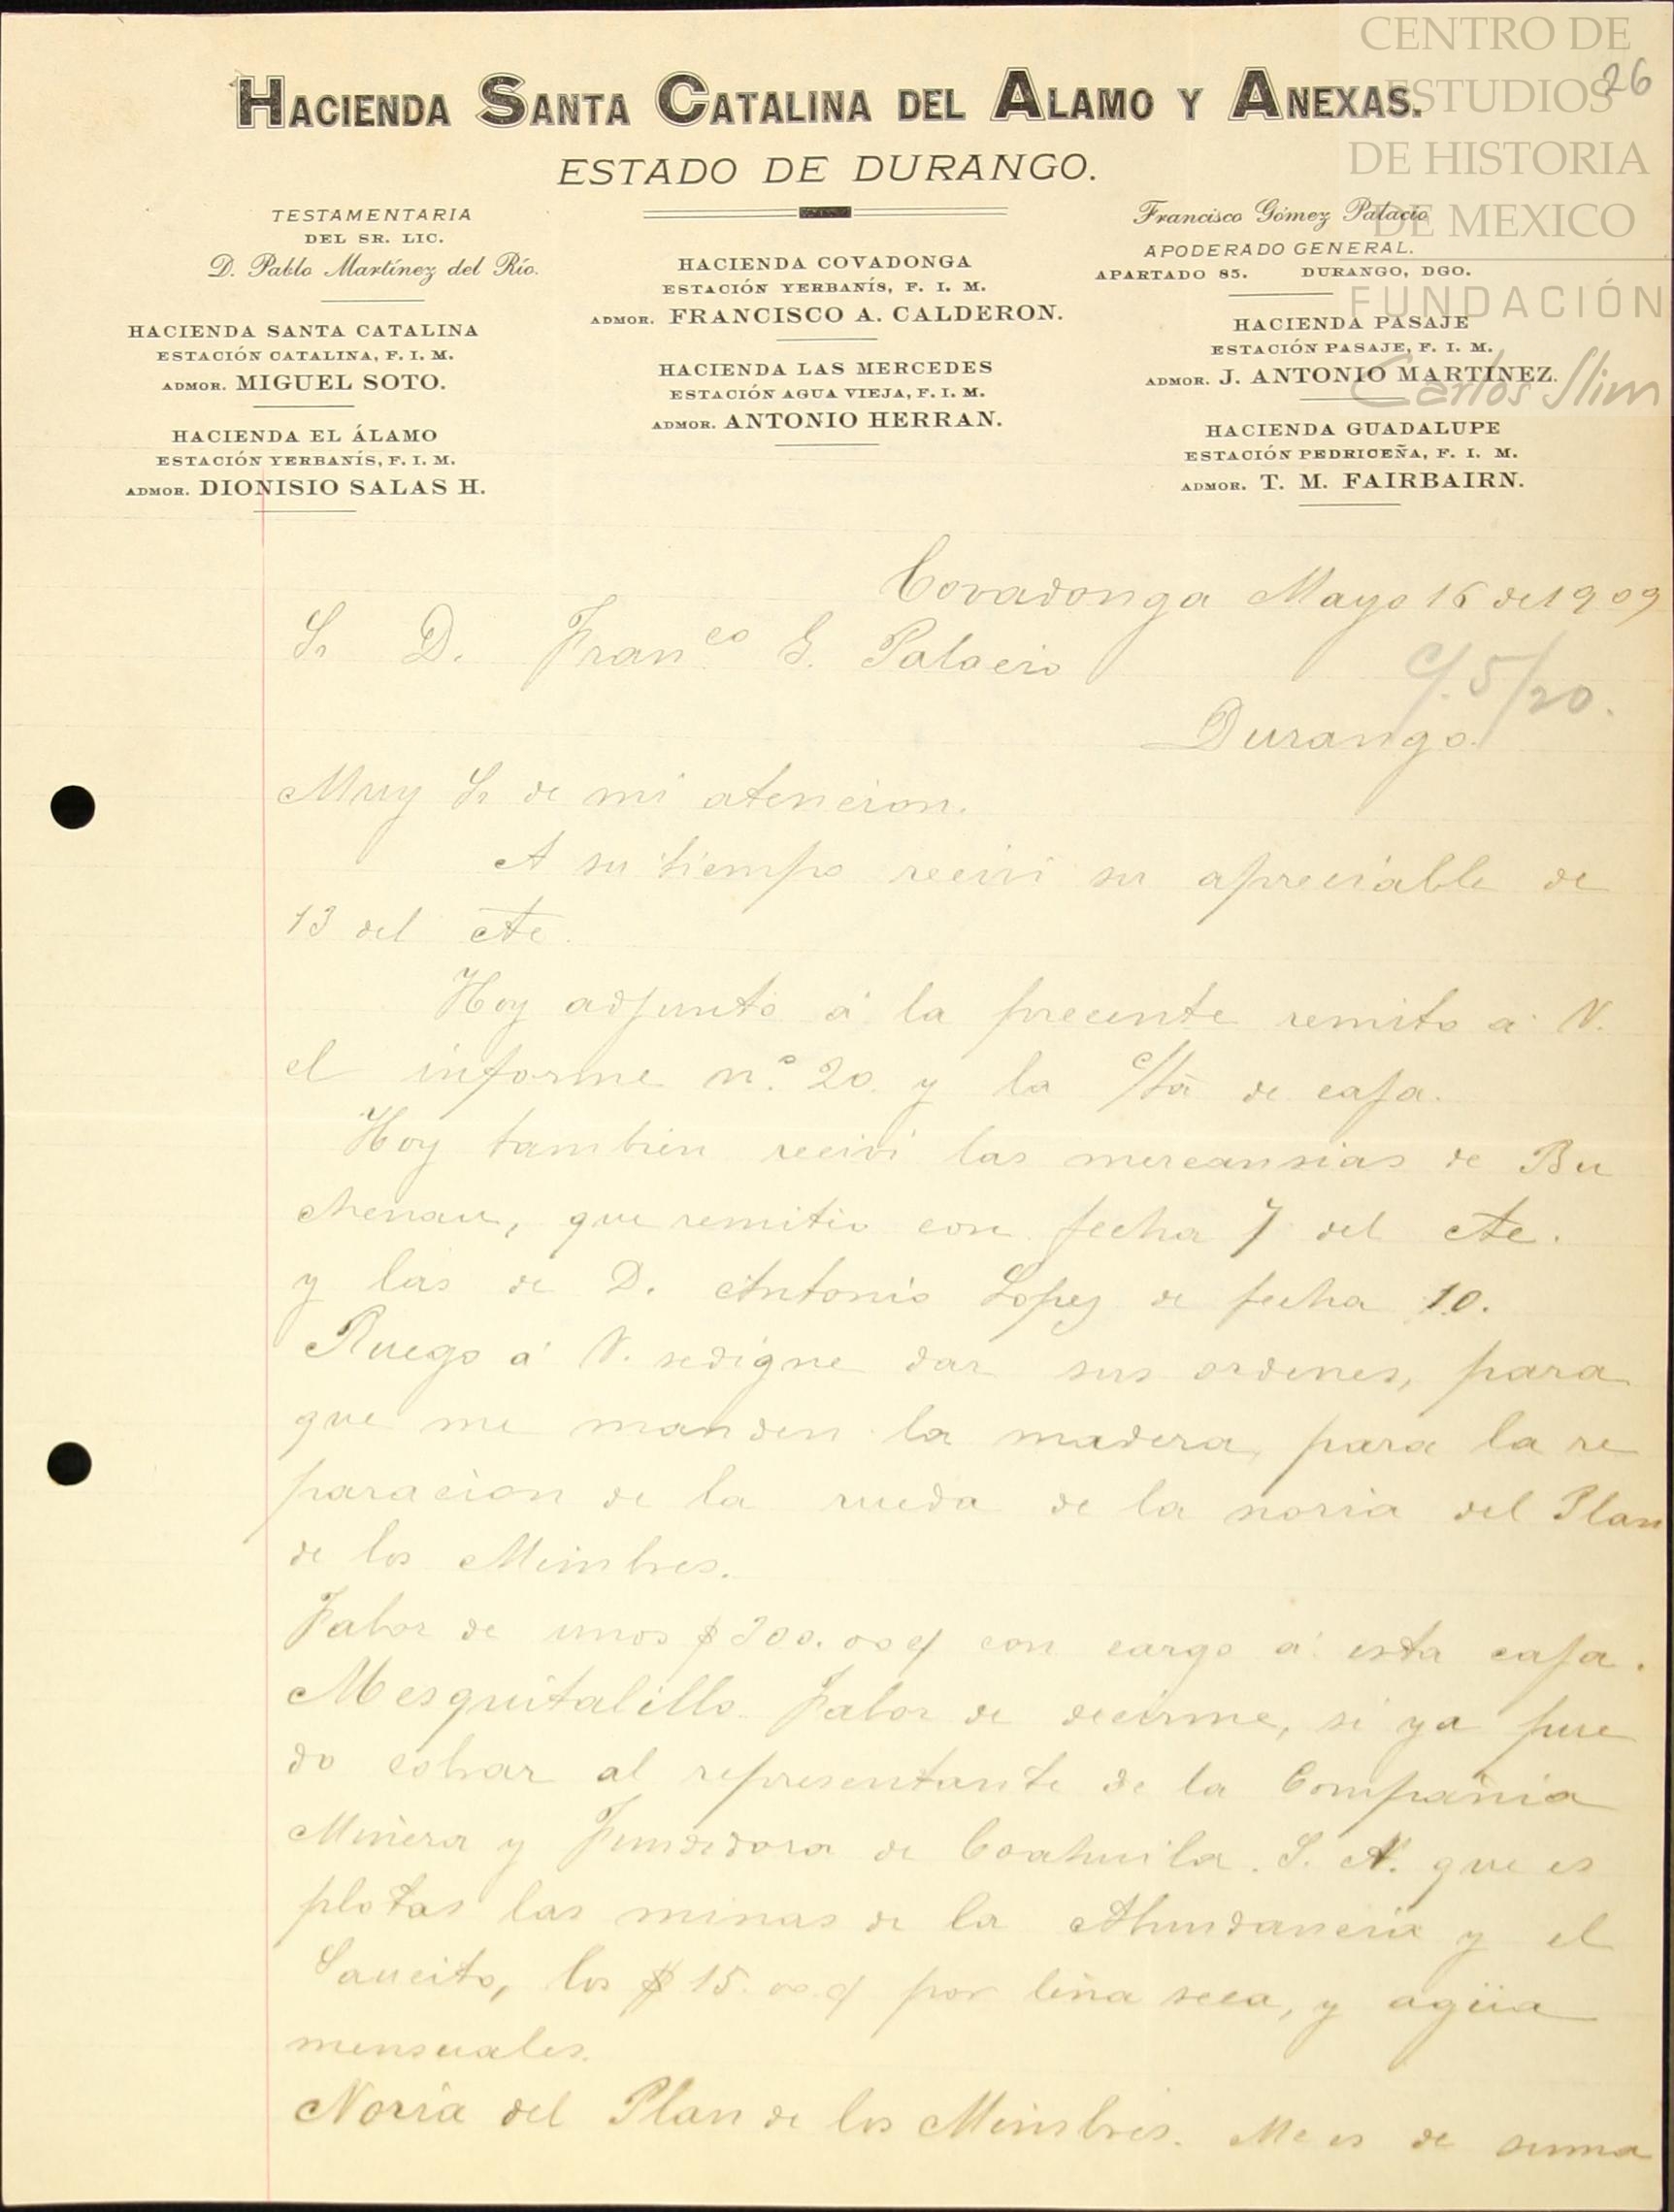 CENTRO DE
ESTUDIOS
DE HISTORIA
DE MEXICO
FUNDACIÓN
Carlos Slim
26
HACIENDA SANTA CATALINA DEL ALAMO Y ANEXAS.
ESTADO DE DURANGO.
TESTAMENTARIA
DEL SR. LIC.
D. Pablo Martínez del Río.
HACIENDA SANTA CATALINA
ESTACIÓN CATALINA, F. I. M.
ADMOR. MIGUEL SOTO.
HACIENDA EL ÁLAMO
ESTACIÓN YERBANÍS, F. I. M.
ADMOR. DIONISIO SALAS H.
HACIENDA COVADONGA
ESTACIÓN YERBANÍS, F. I. M.
ADMOR. FRANCISCO A. CALDERON.
HACIENDA LAS MERCEDES
ESTACIÓN AGUA VIEJA, F. I. M.
ADMOR. ANTONIO HERRAN.
Francisco Gómez Palacio
APODERADO GENERAL.
APARTADO 85. DURANGO, DGO.
HACIENDA PASAJE
ESTACIÓN PASAJE, F. I. M.
ADMOR. J. ANTONIO MARTINEZ.
HACIENDA GUADALUPE
ESTACIÓN PEDRICEÑA, F. I. M.
ADMOR. T. M. FAIRBAIRN.
Covadonga Mayo 16 de 1909
Sr D. Franco G. Palacio
c/. 5/20.
Durango.
Muy Sr de mi atencion.
A su tiempo recivi su apreciable de
13 del cte.
Hoy adjunto á la precente remito a V.
el informe n.º 20. y la c/ta de caja.
Hoy tambien recivi las mercansias de Bu
chenau, que remitio con fecha 7 del cte.
y las de D. Antonio Lopez de fecha 10.
Ruego á V. sedigne dar sus ordenes, para
que me manden la madera, para la re
paracion de la rueda de la noria del Plan
de los Mimbres.
Fabor de unos $200.00 c/ con cargo á esta caja.
Mesquitalillo. Fabor de decirme, si ya pue
do cobrar al representante de la Compañia
Minera y Fundidora de Coahuila. S. A. que es
plotas las minas de la Abundancia y el
Saucito, los $15.00 c/ por leña seca, y agüa
mensuales.
Noria del Plan de los Mimbres. Me es de suma